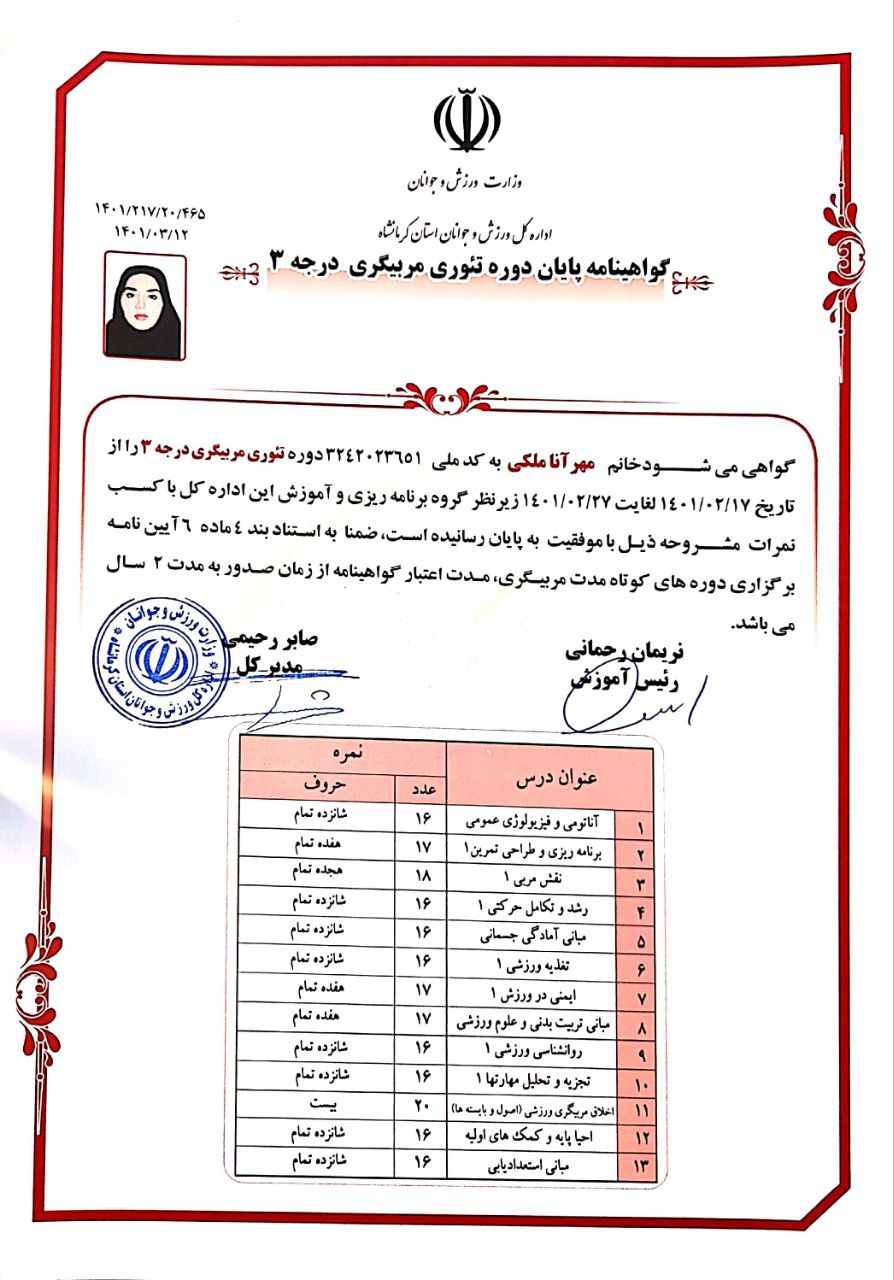 وزارت ورزش و جوانان
اداره کل ورزش و جوانان استان کرمانشاه
۱۴۰۱/۲۱۷/۲۰/۴۶۵
۱۴۰۱/۰۳/۱۲
گواهینامه پایان دوره تئوری مربیگری درجه ۳
گواهی می شـــــود خانم مهرآنا ملکی به کد ملی ۳۲٤۲۰۲۳٦٥۱ دوره تئوری مربیگری درجه ۳ را از
تاریخ ۱٤۰۱/۰۲/۱۷ لغایت ۱٤۰۱/۰۲/۲۷ زیرنظر گروه برنامه ریزی و آموزش این اداره کل با کسب
نمرات مشـــروحه ذیـل با موفقیت به پایان رسانیده است، ضمنا به استناد بند ٤ ماده ٦ آیین نامه
برگزاری دوره های کوتاه مدت مربیگری، مدت اعتبار گواهینامه از زمان صدور به مدت ۲ سال
می باشد.
نریمان رحمانی
رئیس آموزش
صابر رحیمی
مدیر کل
وزارت ورزش و جوانان
اداره کل ورزش و جوانان استان کرمانشاه
عنوان درس نمره
عدد حروف
۱ آناتومی و فیزیولوژی عمومی ۱۶ شانزده تمام
۲ برنامه ریزی و طراحی تمرین۱ ۱۷ هفده تمام
۳ نقش مربی ۱ ۱۸ هجده تمام
۴ رشد و تکامل حرکتی ۱ ۱۶ شانزده تمام
۵ مبانی آمادگی جسمانی ۱۶ شانزده تمام
۶ تغذیه ورزشی ۱ ۱۶ شانزده تمام
۷ ایمنی در ورزش ۱ ۱۷ هفده تمام
۸ مبانی تربیت بدنی و علوم ورزشی ۱۷ هفده تمام
۹ روانشناسی ورزشی ۱ ۱۶ شانزده تمام
۱۰ تجزیه و تحلیل مهارتها ۱ ۱۶ شانزده تمام
۱۱ اخلاق مربیگری ورزشی (اصول و بایسته ها) ۲۰ بیست
۱۲ احیا پایه و کمک های اولیه ۱۶ شانزده تمام
۱۳ مبانی استعدادیابی ۱۶ شانزده تمام